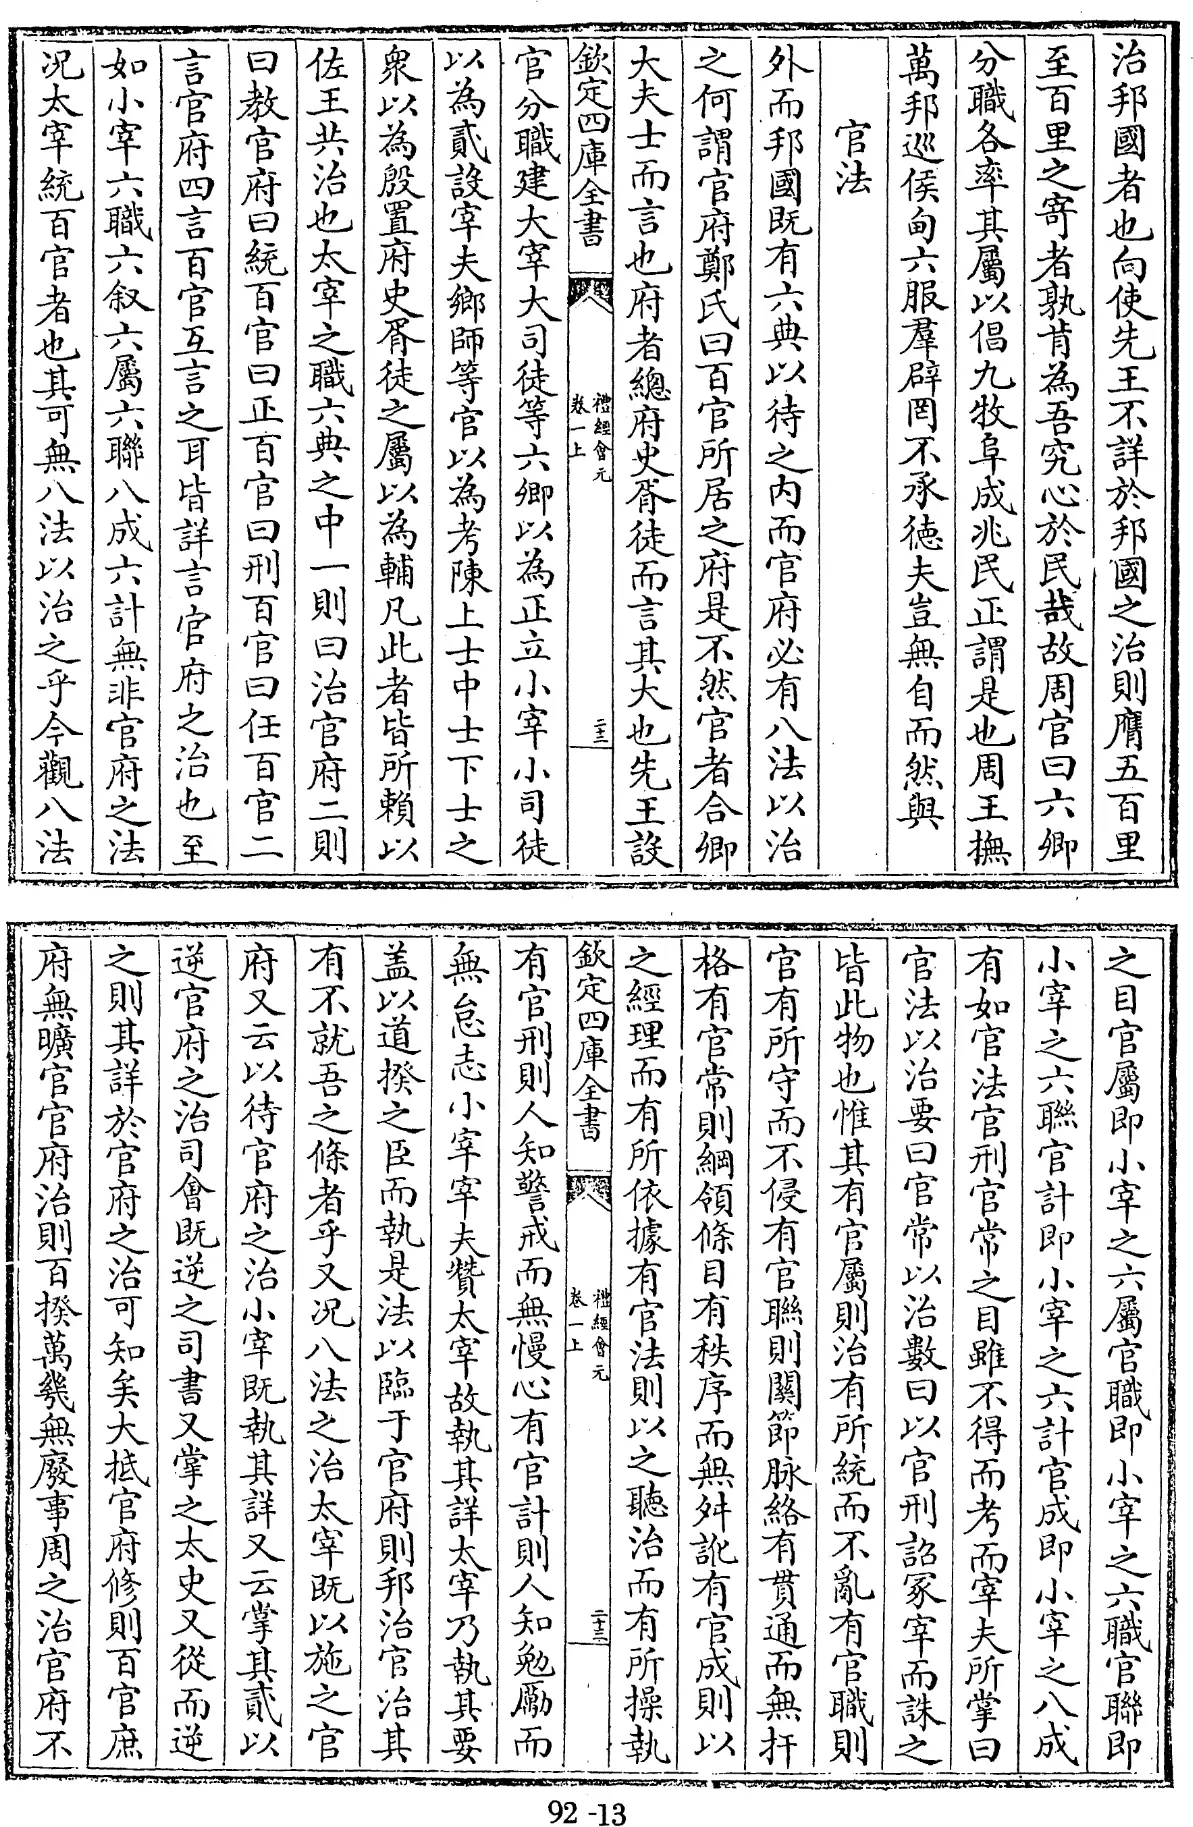 治邦國者也向使先王不詳於邦國之治則膺五百里
至百里之寄者孰肯為吾究心於民哉故周官曰六卿
分職各率其屬以倡九牧阜成兆民正謂是也周王撫
萬邦巡侯甸六服羣辟罔不承德夫豈無自而然與
官法
外而邦國既有六典以待之内而官府必有八法以治
之何謂官府鄭氏曰百官所居之府是不然官者合卿
大夫士而言也府者總府史胥徒而言其大也先王設
欽定四庫全書
禮經會元
卷一上
二十三
官分職建大宰大司徒等六卿以為正立小宰小司徒
以為貳設宰夫鄉師等官以為考陳上士中士下士之
衆以為殷置府史胥徒之屬以為輔凡此者皆所賴以
佐王共治也太宰之職六典之中一則曰治官府二則
曰教官府曰統百官曰正百官曰刑百官曰任百官二
言官府四言百官互言之耳皆詳言官府之治也至
如小宰六職六叙六屬六聯八成六計無非官府之法
况太宰統百官者也其可無八法以治之乎今觀八法
之目官屬即小宰之六屬官職即小宰之六職官聯即
小宰之六聯官計即小宰之六計官成即小宰之八成
有如官法官刑官常之目雖不得而考而宰夫所掌曰
官法以治要曰官常以治數曰以官刑詔冢宰而誅之
皆此物也惟其有官屬則治有所統而不亂有官職則
官有所守而不侵有官聯則關節脉絡有貫通而無扞
格有官常則綱領條目有秩序而無舛訛有官成則以
之經理而有所依據有官法則以之聽治而有所操執
欽定四庫全書
禮經會元
卷一上
二十三
有官刑則人知警戒而無慢心有官計則人知勉勵而
無怠志小宰宰夫贊太宰故執其詳太宰乃執其要
盖以道揆之臣而執是法以臨于官府則邦治官治其
有不就吾之條者乎又况八法之治太宰既以施之官
府又云以待官府之治小宰既執其詳又云掌其貳以
逆官府之治司會既逆之司書又掌之太史又從而逆
之則其詳於官府之治可知矣大抵官府修則百官庶
府無曠官官府治則百揆萬幾無廢事周之治官府不
92-13